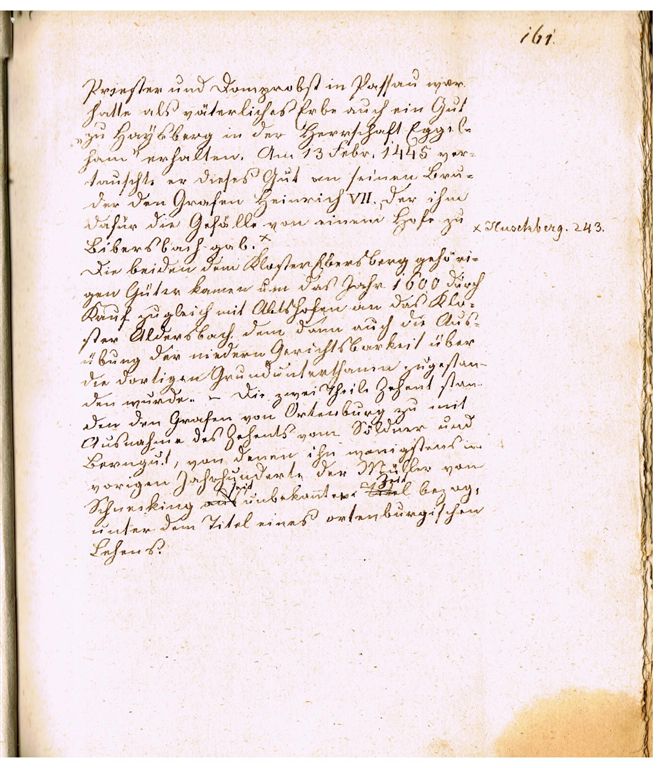 161.
Priester und Domprobst in Passau war
hatte als väterliches Erbe auch ein Gut
zu Haysberg in der Herrschaft Eggel-
ham" erhalten. Am 13 Febr. 1445 ver-
tauschte er dieses Gut an seinen Bru-
der den Grafen Heinrich VII. der ihm
dafür die Gefälle von einem Hofe zu
Bibersbach gab. x
x Huschberg. 243.
Die beiden dem Kloster Ebersberg gehöri-
gen Güter kamen um das Jahr 1600 durch
Kauf zugleich mit Abtshofen an das Klo-
ster Aldersbach, dem dann auch die Aus-
übung der niedern Gerichtsbarkeit über
die dortigen Grundunterthanen zugestan-
den wurde. – Die zwei Theile Zehent stan-
den den Grafen von Ortenburg zu mit
Ausnahme des Zehents vom Söldner und
Berngut, von denen ihn wenigstens im
vorigen Jahrhunderte der Müller von
Schnecking seit unbekannter Zeit bezog,
unter dem Titel eines ortenburgischen
Lehens.